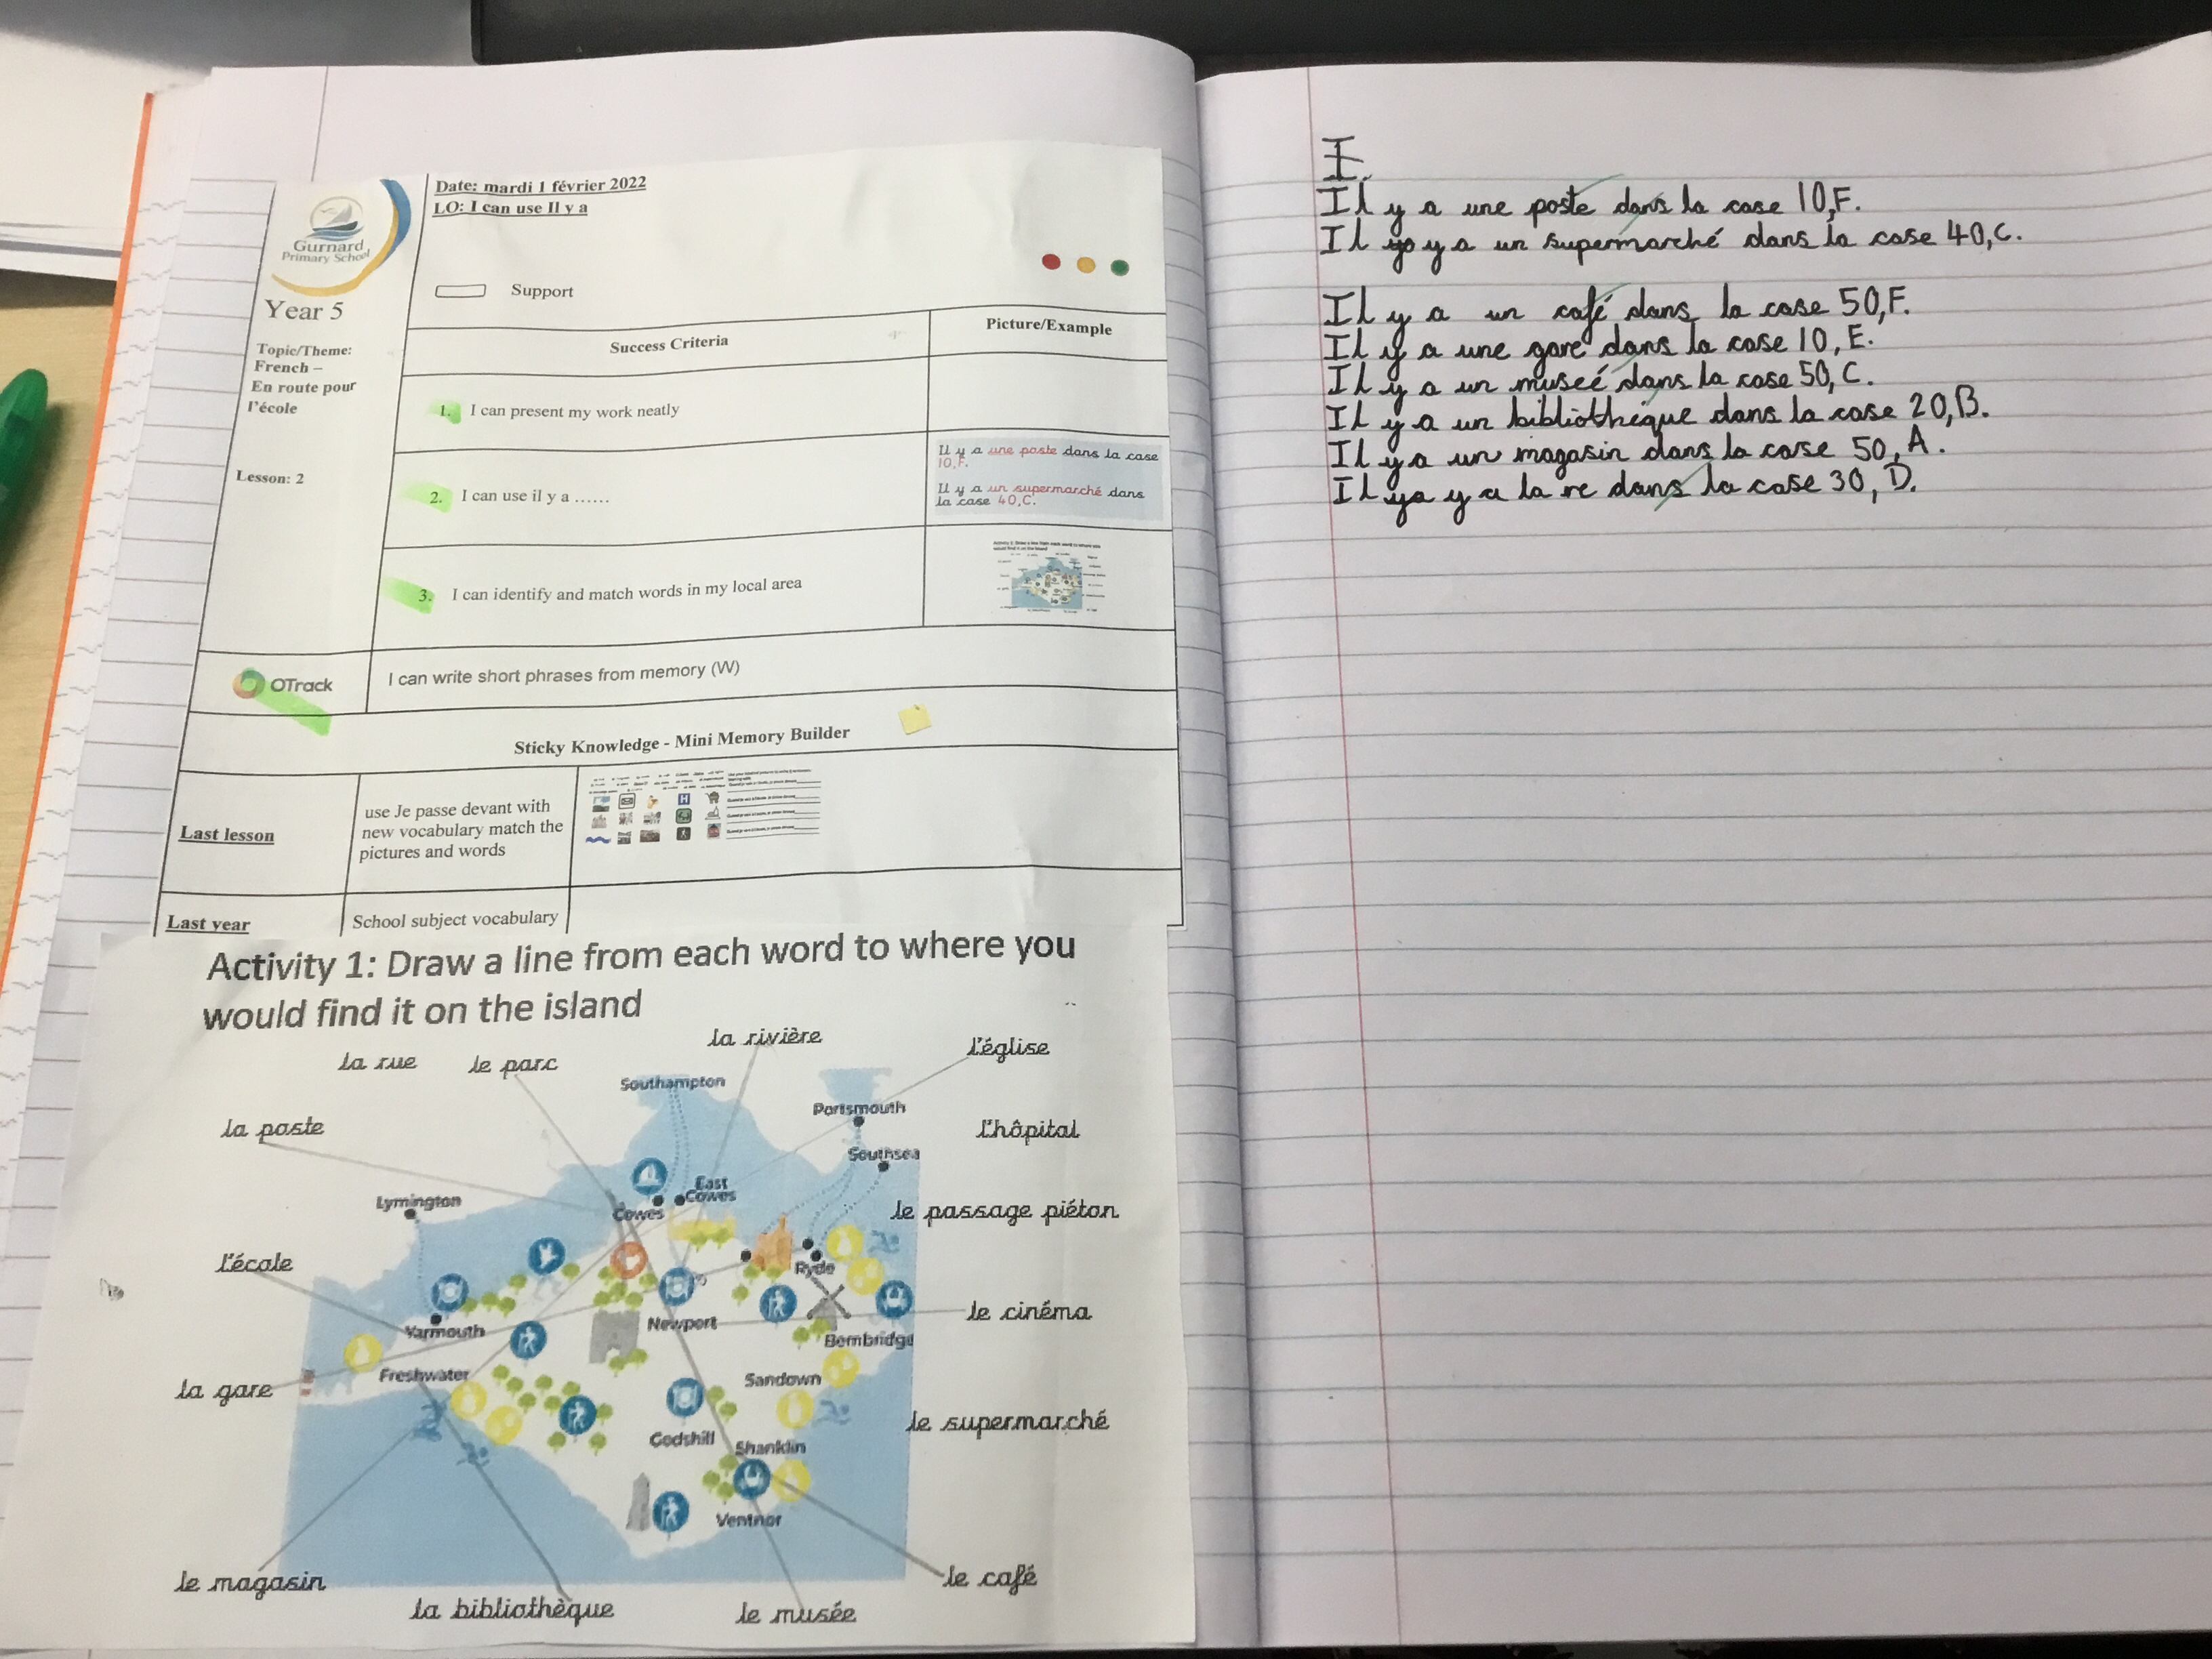 Gurnard
Primary School
Year 5
Topic/Theme:
French –
En route pour
l'école
Lesson: 2
Date: mardi 1 février 2022
LO: I can use Il y a
Support
Success Criteria
Picture/Example
1. I can present my work neatly
2. I can use il y a ......
Il y a une poste dans la case
10,F.
Il y a un supermarché dans
la case 40,C.
3. I can identify and match words in my local area
OTrack
I can write short phrases from memory (W)
Sticky Knowledge - Mini Memory Builder
Last lesson
use Je passe devant with
new vocabulary match the
pictures and words
Last year
School subject vocabulary
Activity 1: Draw a line from each word to where you
would find it on the island
la rue
le parc
la rivière
l'église
la poste
Southampton
Portsmouth
l'hôpital
Southsea
Lymington
East
Cowes
Cowes
le passage piéton
l'école
Ryde
le cinéma
Yarmouth
Newport
Bembridge
Freshwater
Sandown
la gare
le supermarché
Godshill
Shanklin
Ventnor
le magasin
la bibliothèque
le musée
le café
I.
Il y a une poste dans la case 10,F.
Il yo y a un supermarché dans la case 40,C.
Il y a un café dans la case 50,F.
Il y a une gare dans la case 10, E.
Il y a un museé dans la case 50, C.
Il y a un bibliothéque dans la case 20,B.
Il y a un magasin dans la case 50, A.
Il ya y a la re dans la case 30, D.